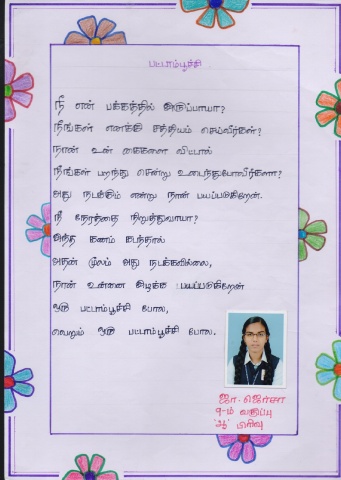 பட்டாம்பூச்சி
நீ என் பக்கத்தில் இருப்பாயா?
நீங்கள் எனக்கு சத்தியம் செய்வீர்கள்?
நான் உன் கைகளை விட்டால்
நீங்கள் பறந்து சென்று உடைந்துபோவீர்களா?
அது நடக்கும் என்று நான் பயப்படுகிறேன்.
நீ நேரத்தை நிறுத்துவாயா?
இந்த கணம் கடந்தால்
அதன் மூலம் அது நடக்கவில்லை,
நான் உன்னை இழக்க பயப்படுகிறேன்
ஒரு பட்டாம்பூச்சி போல,
வெறும் ஒரு பட்டாம்பூச்சி போல.
ஜா. ஜெர்சா
9-ம் வகுப்பு
'ஆ' பிரிவு